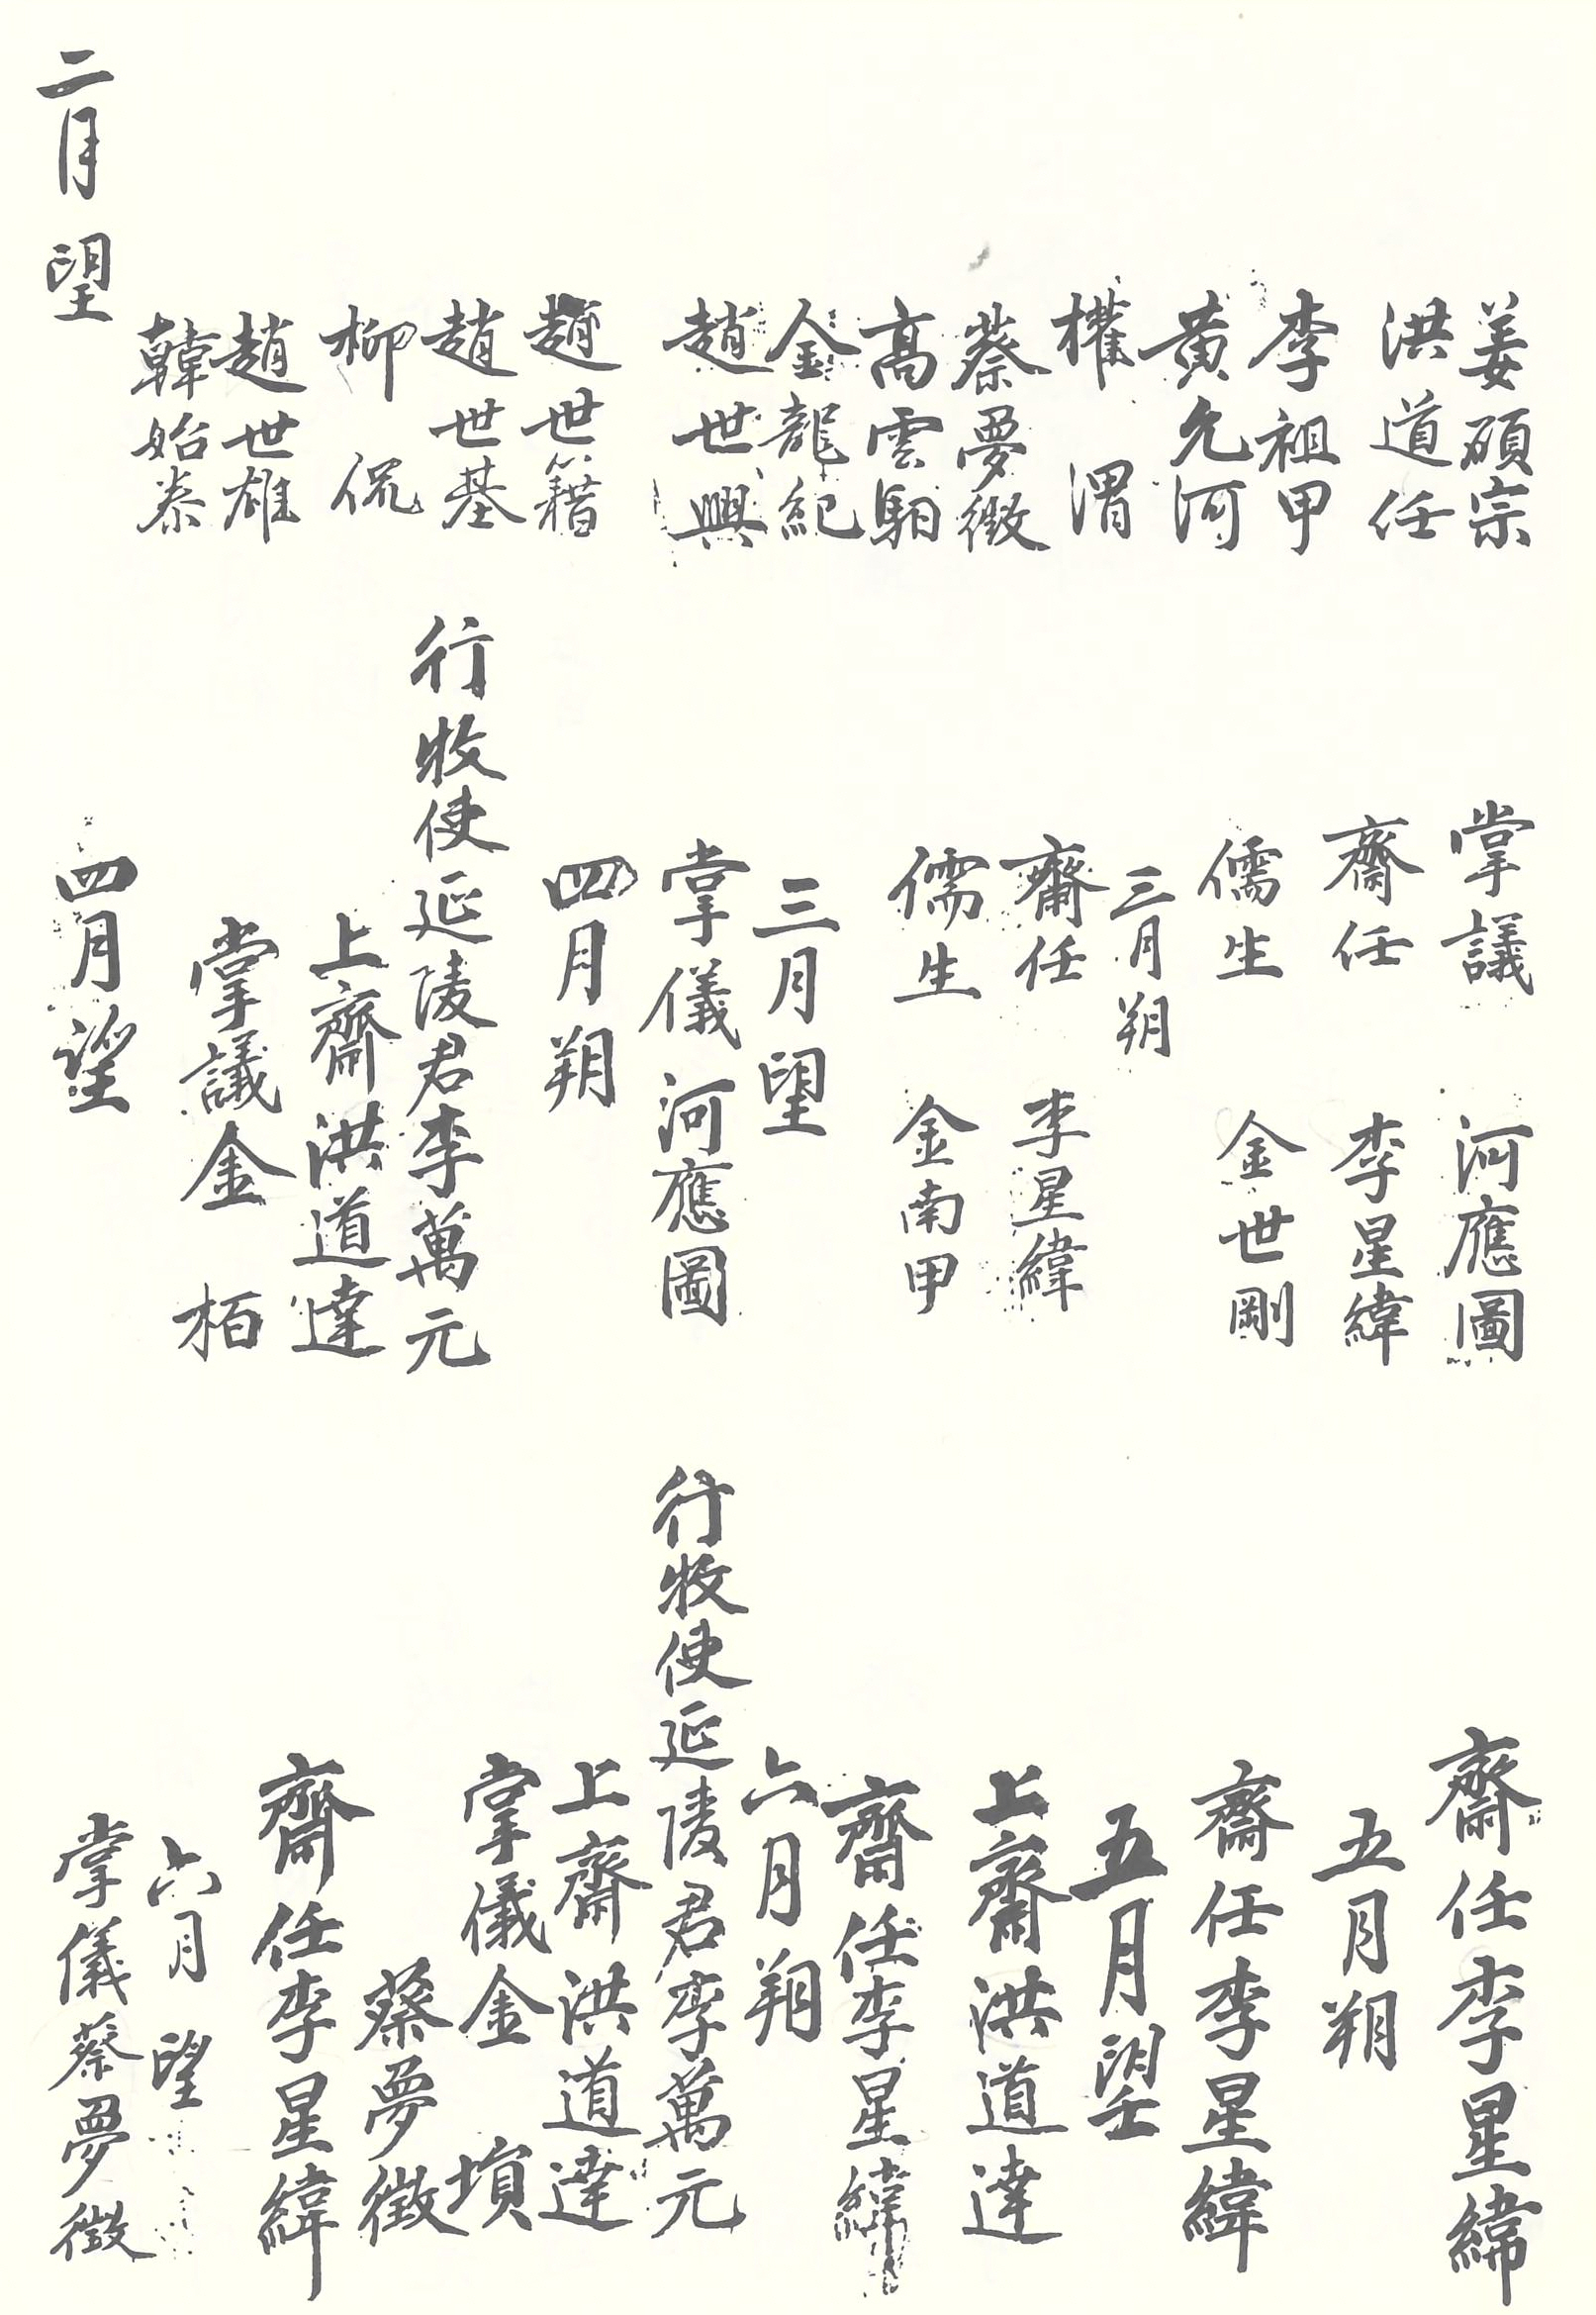 姜碩宗
洪道任
李祖甲
黃允河
權渭
蔡夢徵
高雲駉
金龍紀
趙世興
趙世籍
趙世基
柳侃
趙世雄
韓始泰
二月望
掌議 河應圖
齋任 李星緯
儒生 金世剛
三月朔
齋任 李星緯
儒生 金南甲
三月望
掌儀 河應圖
四月朔
行牧使延陵君李萬元
上齋洪道達
掌議金栢
四月望
齋任李星緯
五月朔
齋任李星緯
五月望
上齋洪道達
齋任李星緯
六月朔
行牧使延陵君李萬元
上齋洪道達
掌儀金塤
蔡夢徵
齋任李星緯
六月望
掌儀蔡夢徵